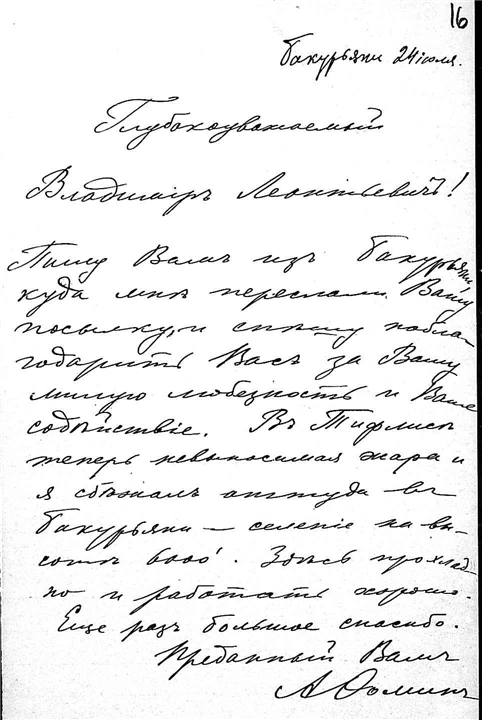 16
Бакурьяни 24 іюля.
Глубокоуважаемый
Владиміръ Леонтьевичъ!
Пишу Вамъ изъ Бакурьяни,
куда мнѣ переслали Вашу
посылку, и спѣшу побла-
годарить Васъ за Вашу
милую любезность и Ваше
содѣйствіе. Въ Тифлисѣ
теперь невыносимая жара и
я сбѣжалъ оттуда въ
Бакурьяни – селеніе на вы-
сотѣ 6000'. Здѣсь прохлад-
но и работать хорошо.
Еще разъ большое спасибо.
Преданный Вамъ
АѲоминъ